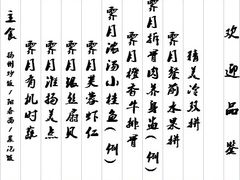 欢迎品鉴
精美冷双拼
霁月餐前水果拼
霁月拆骨肉荠身盏(例)
霁月橙香牛排骨
霁月浓汤小桂鱼(例)
霁月芙蓉虾仁
霁月银丝扇贝
霁月淮扬美点
霁月有机时蔬
主食 扬州炒饭/阳春面/菜泡饭